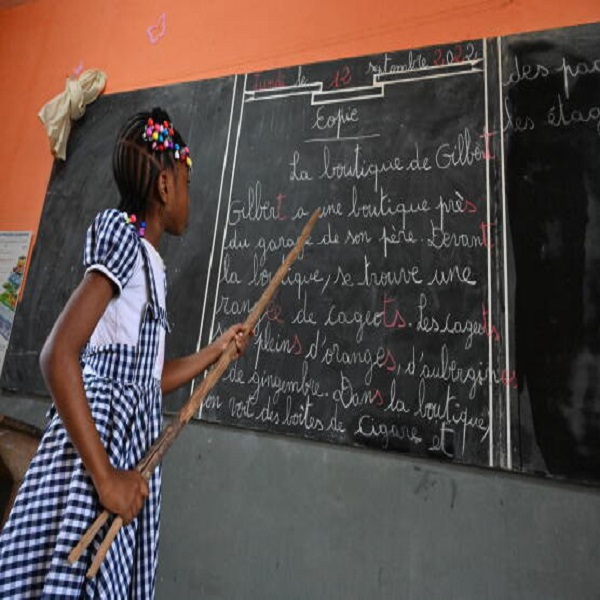 Lundi le 12 septembre 2022
Copie
La boutique de Gilbert
Gilbert a une boutique près
du garage de son père. Devant
la boutique, se trouve une
rangée de cageots. Les cageots
sont pleins d'oranges, d'aubergines
de gingembre. Dans la boutique,
on voit des boîtes de Cigare et
des
les étag